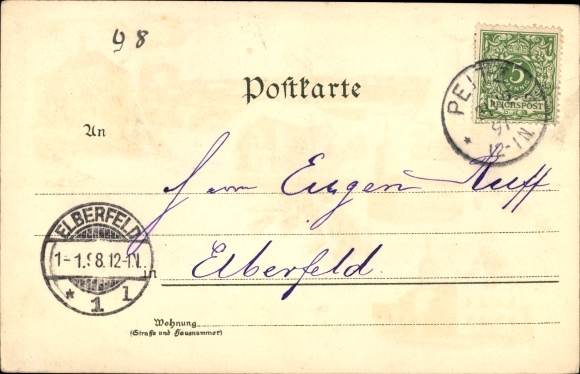 98
Postkarte
5
REICHSPOST
97
12-1N.
An
Herrn Eugen Ruff
ELBERFELD
1-1.98.12-1N.
* 1 l
in Elberfeld
Wohnung
(Straße und Hausnummer)